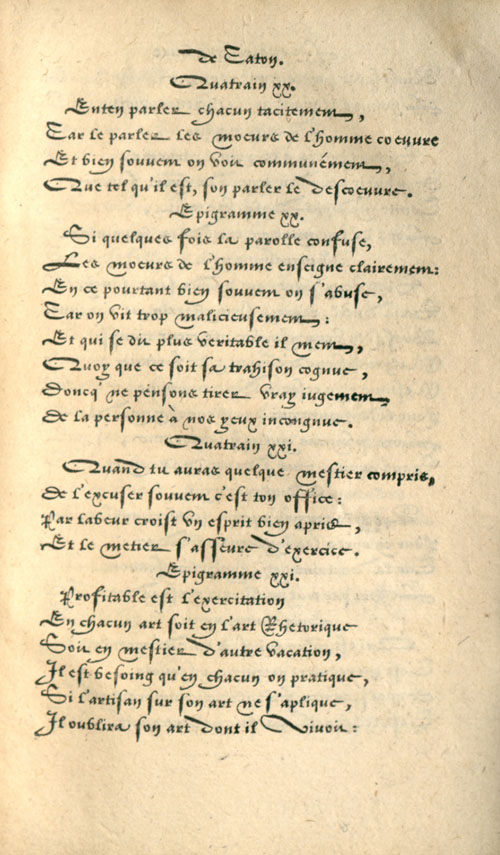 de Caton.
Quatrain xx.
Enten parler chacun tacitement,
Car le parler les moeurs de l'homme coeuvre
Et bien souvent on voit communément,
Que tel qu'il est, son parler le descoeuvre.
Epigramme xx.
Si quelques fois la parolle confuse,
Les moeurs de l'homme enseigne clairement:
En ce pourtant bien souvent on s'abuse,
Car on vit trop malicieusement:
Et qui se dit plus veritable il ment,
Quoy que ce soit sa trahison cognue,
Doncq' ne pensons tirer vray iugement,
De la personne à nos yeux incongnue.
Quatrain xxi.
Quand tu auras quelque mestier compris,
De l'excuser souvent c'est ton office:
Par labeur croist vn esprit bien apris,
Et le metier s'asseure d'exercice.
Epigramme xxi.
Profitable est l'exercitation
En chacun art soit en l'art Rhetorique
Soit en mestier d'autre vacation,
Il est besoing qu'en chacun on pratique,
Si l'artisan sur son art ne s'aplique,
Il oublira son art dont il vivoit: